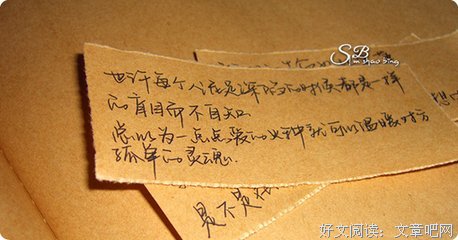 SB
Sm shao bing
也许每个人在是深陷的时候都是一样
的盲目而不自知
总以为一点点爱的火种就可以温暖对方
孤单的灵魂.
是不是
好文阅读：文章吧网